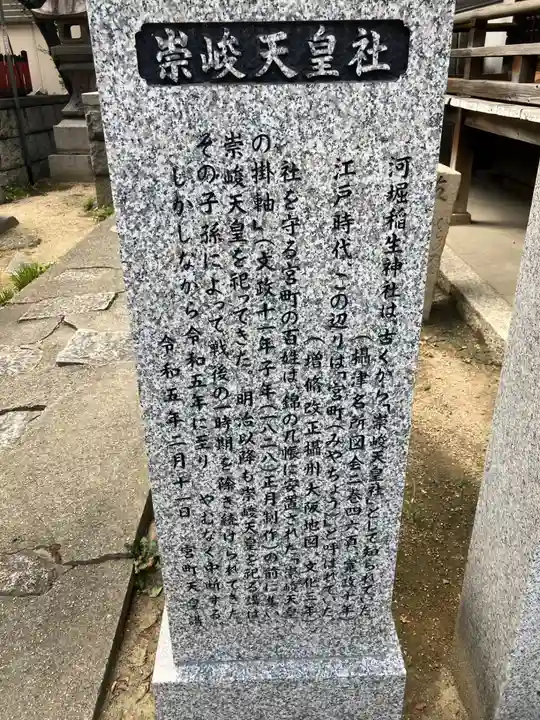 崇峻天皇社
河堀稲生神社は、古くから「崇峻天皇社」として知られてきた
(攝津名所図会二巻四六頁 寛政十年)
江戸時代 この辺りは「宮町(みやちょう)」と呼ばれていた
(増脩改正攝州大阪地図 文化三年)
社を守る宮町の百姓は、錦の几帳に安置された「崇峻天皇
の掛軸」(文政十一年子年(一八二八)正月制作)の前に集い
崇峻天皇を祀ってきた 明治以降も崇峻天皇を祀る講は
その子孫によって戦後の一時期を除き続けられてきた
しかしながら令和五年に至り やむなく中断する
令和五年二月十一日 宮町天皇講